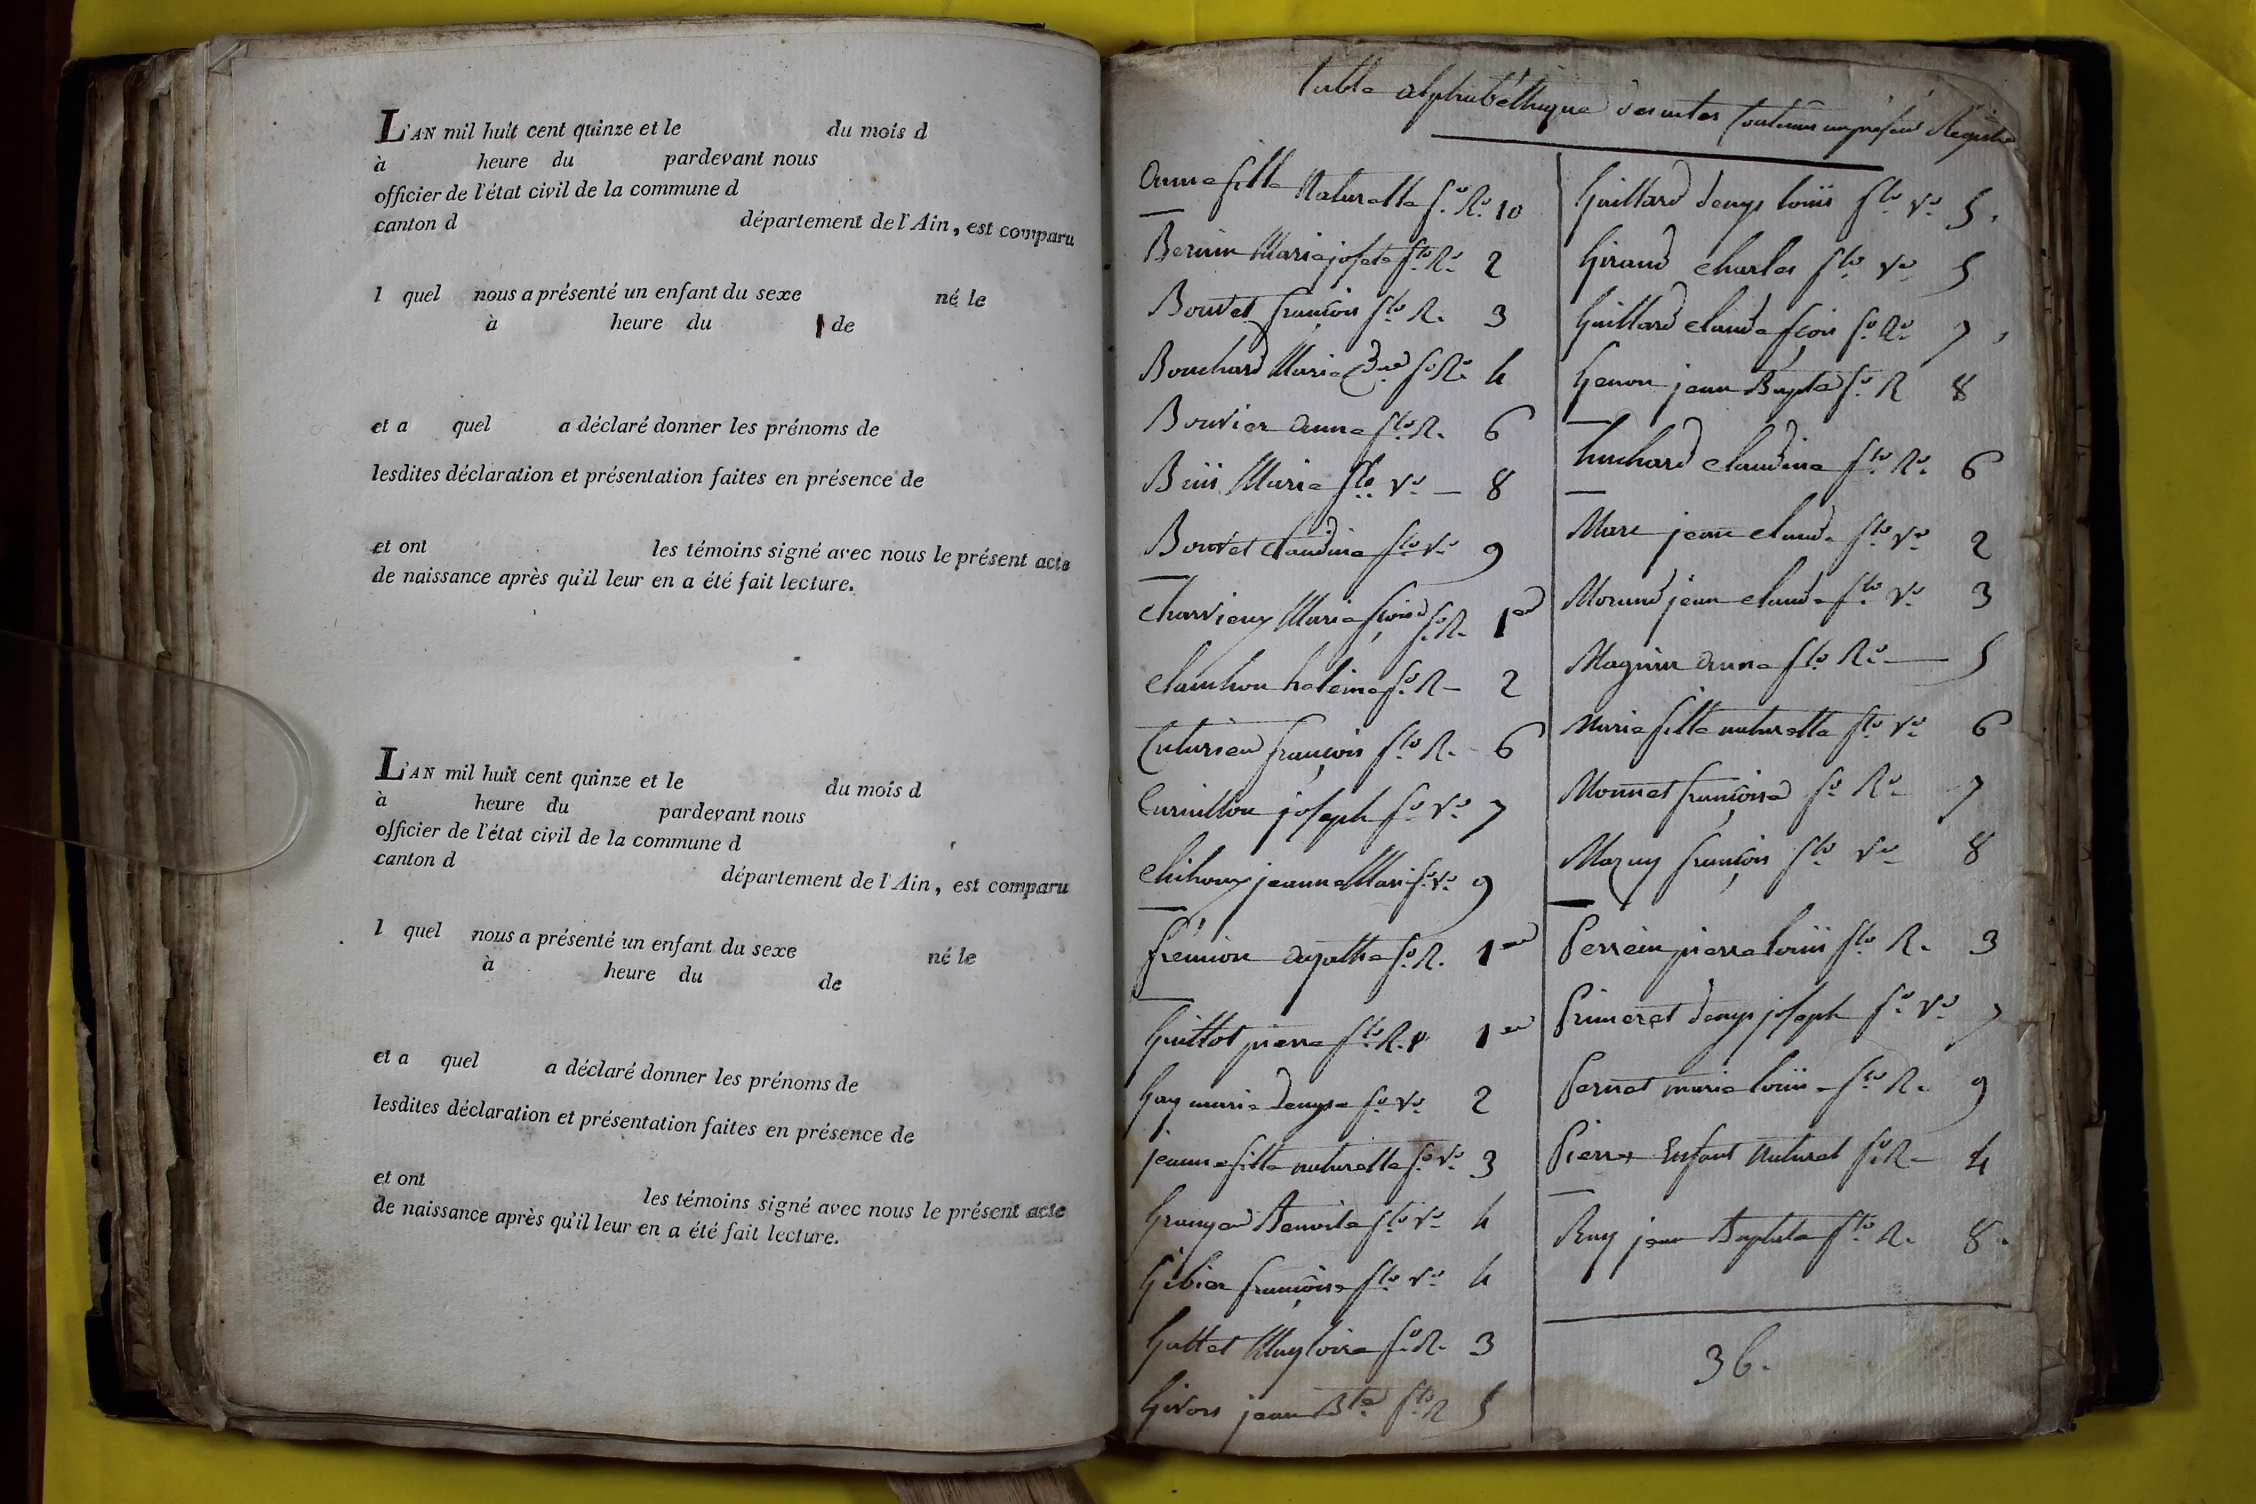 L'AN mil huit cent quinze et le du mois d
à heure du pardevant nous
officier de l'état civil de la commune d
canton d département de l'Ain, est comparu
l quel nous a présenté un enfant du sexe né le
à heure du de
et a quel a déclaré donner les prénoms de
lesdites déclaration et présentation faites en présence de
et ont les témoins signé avec nous le présent acte
de naissance après qu'il leur en a été fait lecture.
L'AN mil huit cent quinze et le du mois d
à heure du pardevant nous
officier de l'état civil de la commune d
canton d département de l'Ain, est comparu
l quel nous a présenté un enfant du sexe né le
à heure du de
et a quel a déclaré donner les prénoms de
lesdites déclaration et présentation faites en présence de
et ont les témoins signé avec nous le présent acte
de naissance après qu'il leur en a été fait lecture.
Table alphabéthique des actes Contenus au présent Registre
Anne fille Naturelle fo. Ro. 10
Marie josete flo. Ro. 2
Bouvet françois flo. R. 3
Bouchard Marie fo. Ro. 4
Bouvier Anne flo. R. 6
Marie flo. vo. 8
Bouvet Claudine flo. vo. 9
Charvieux Marie fçoise fo. R. 1er
helèine fo. R 2
françois flo. R. 6
Curnillon joseph fo. vo. 7
jeanne Marie fo. vo. 9
fremion agathe fo. R. 1er
Guillot pierre flo. R. 1er
Gay marie denyse fo. vo. 2
jeanne fille naturelle fo. vo. 3
Granger Benoite flo. vo. 4
Gibier françoise flo. vo. 4
Gattet fo. R. 3
Givors jean Bte flo. R 5
Guillard denys louis flo. vo. 5.
Giraud charles flo. vo. 5
Guillard claude fçois fo. Ro. 7
Genon jean Bapte fo. R 8
huchard claudine flo. Ro. 6
Marc jean claude flo. vo. 2
Morand jean claude flo. vo. 3
Magnin anne flo. Ro. 5
Marie fille naturelle flo. vo. 6
Monnet françoise fo. Ro. 7
Mazuy françois flo. vo. 8
Perrein pierre louis flo. R. 3
denys joseph fo. vo. 7
Pernet marie louise flo. R. 9
Pierre Enfant Naturel fo. R 4
Ruy jean Baptiste flo. R. 8.
36.